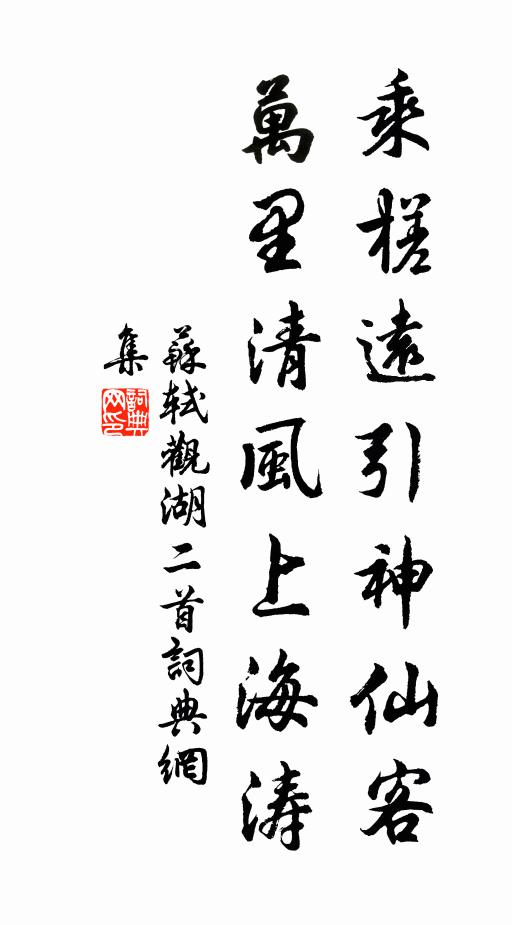 乘槎遠引神仙客
萬里清風上海涛
蘇軾觀湖二首詞典網
集
詞典網印